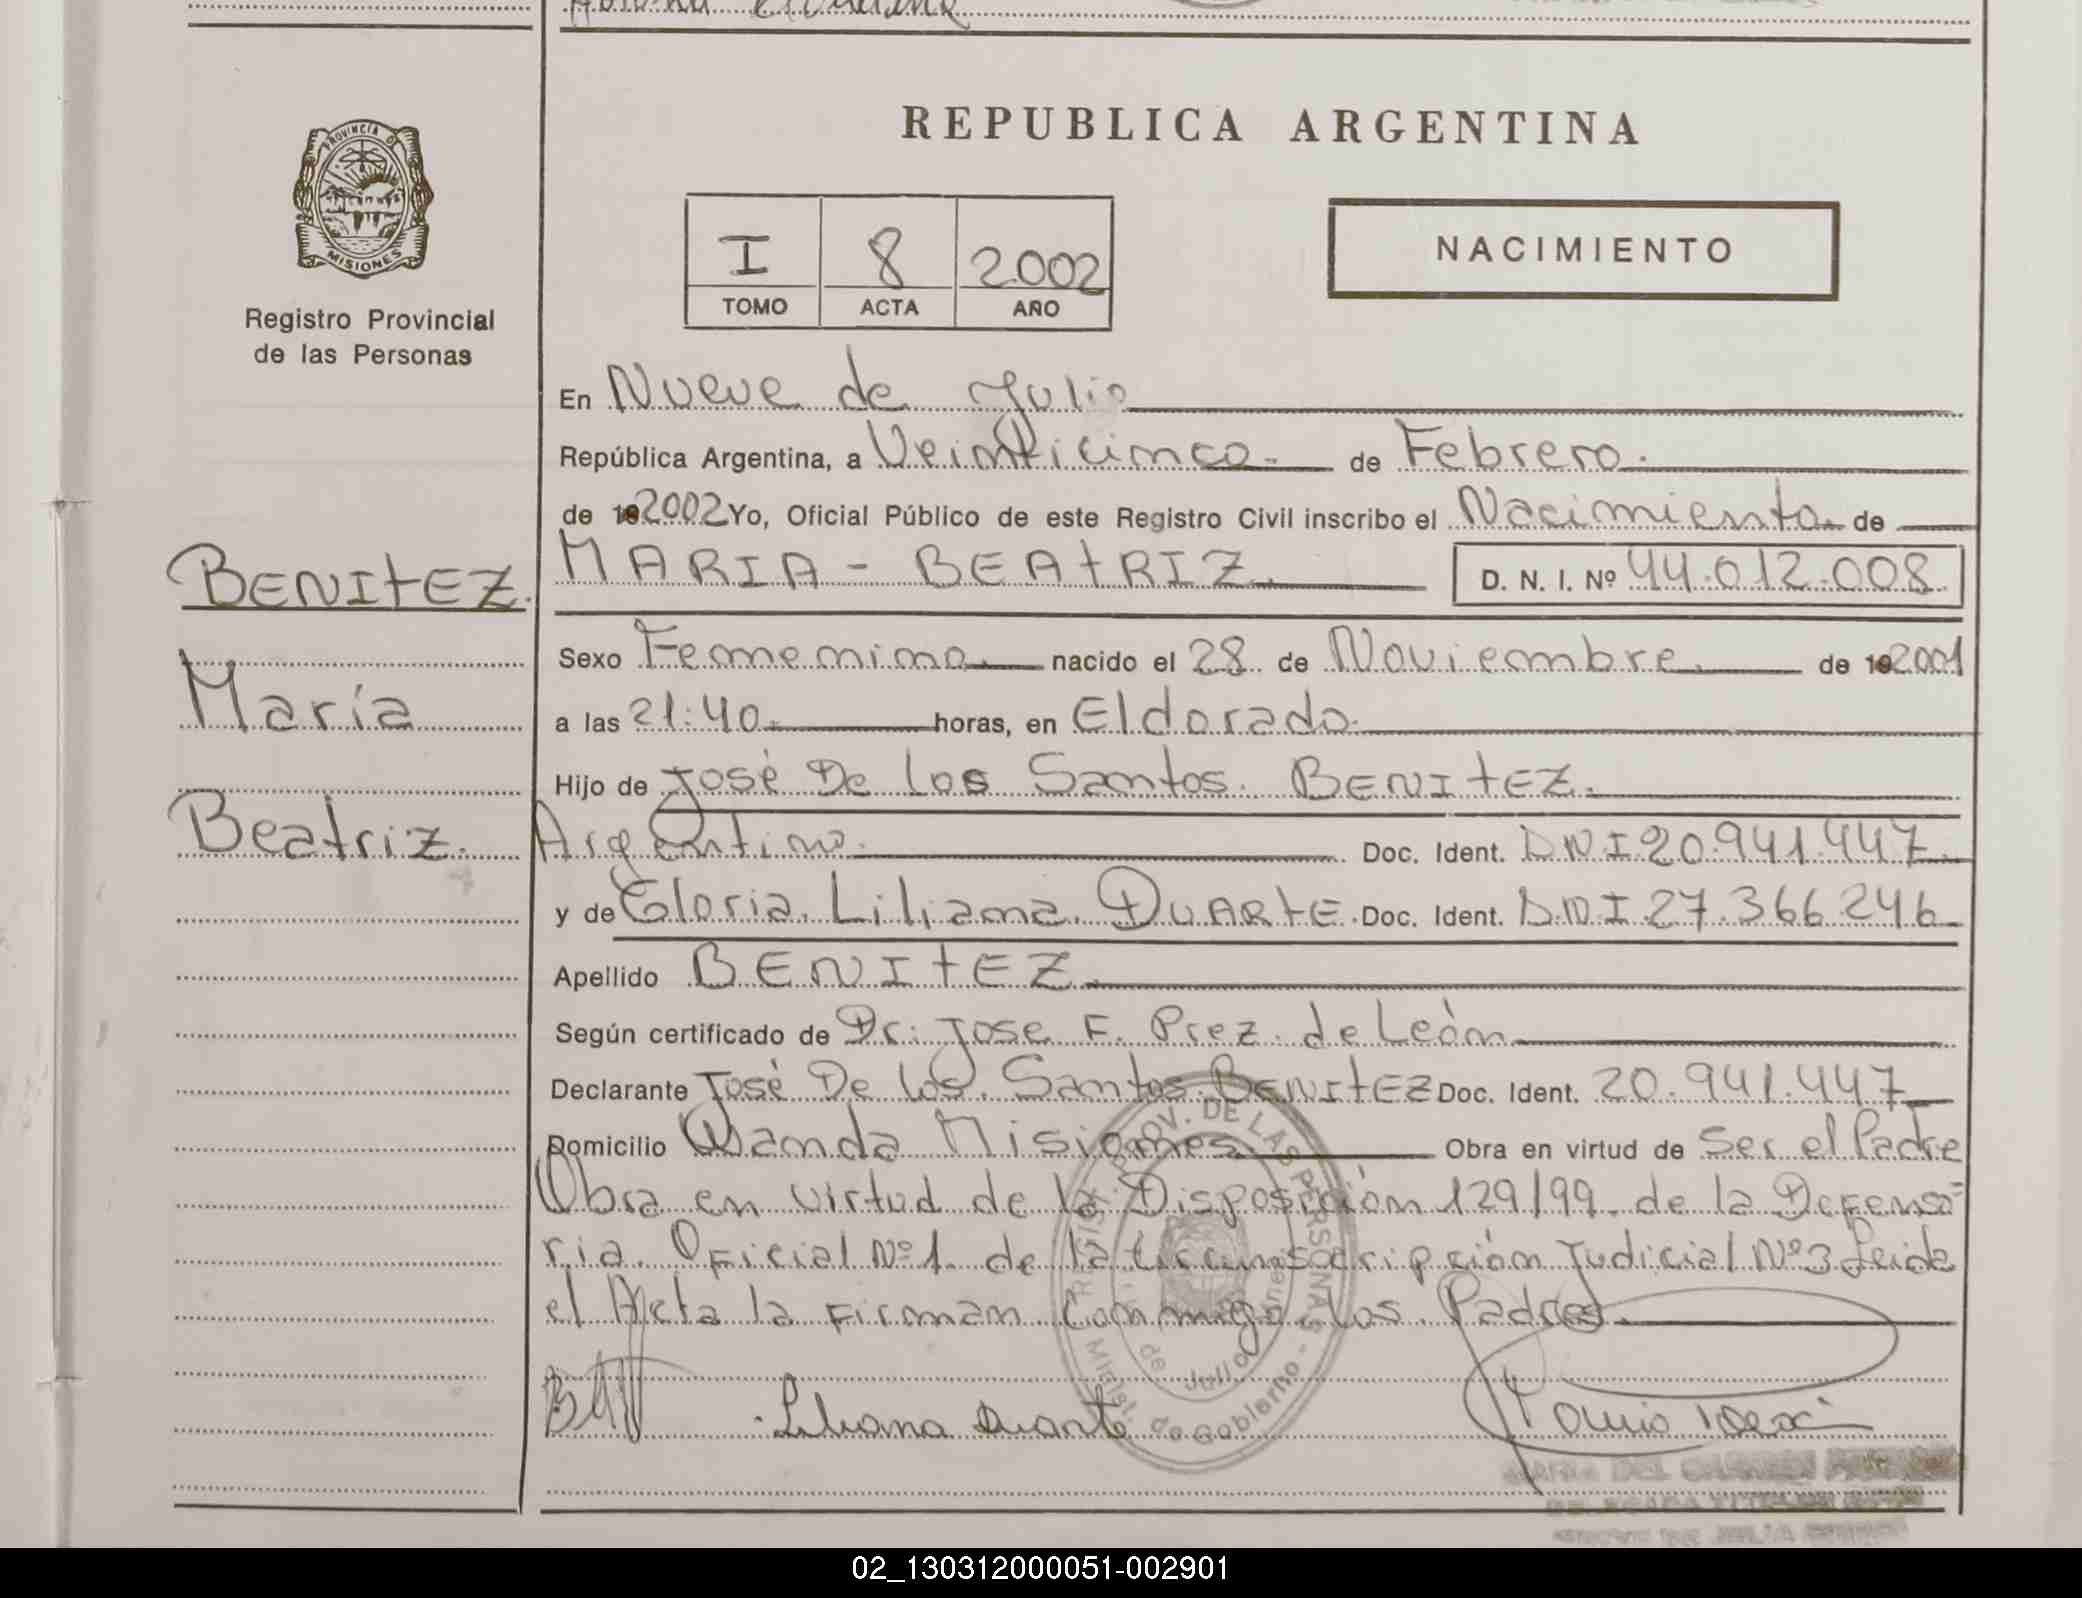 REPUBLICA ARGENTINA
PROVINCIA DE
MISIONES
Registro Provincial
de las Personas
I 8 2002
TOMO ACTA AÑO
NACIMIENTO
BENITEZ.
María
Beatriz.
En Nueve de Julio
República Argentina, a Veinticinco. de Febrero.
de 19 2002 Yo, Oficial Público de este Registro Civil inscribo el Nacimiento de
MARIA - BEATRIZ. D. N. I. Nº 44.012.008
Sexo Femenino nacido el 28 de Noviembre. de 19 2001
a las 21:40. horas, en Eldorado.
Hijo de José De los Santos BENITEZ.
Argentino. Doc. Ident. DNI 20.941.447.
y de Gloria Liliana DUARTE. Doc. Ident. DNI 27.366.246
Apellido BENITEZ.
Según certificado de Dr: Jose F. Prez de León
Declarante José De los Santos BENITEZ Doc. Ident. 20.941.447
Domicilio Wanda Misiones Obra en virtud de Ser el Padre
Obra en virtud de la Disposición 129/99 de la Defenso=
ria Oficial Nº1. de la Circunscripción Judicial Nº3 Leida
el Acta la Firman Conmigo los Padres.
Liliana Duarte
PROV. DE LAS PERSONAS
de Julio
Minist. de Gobierno
02_130312000051-002901